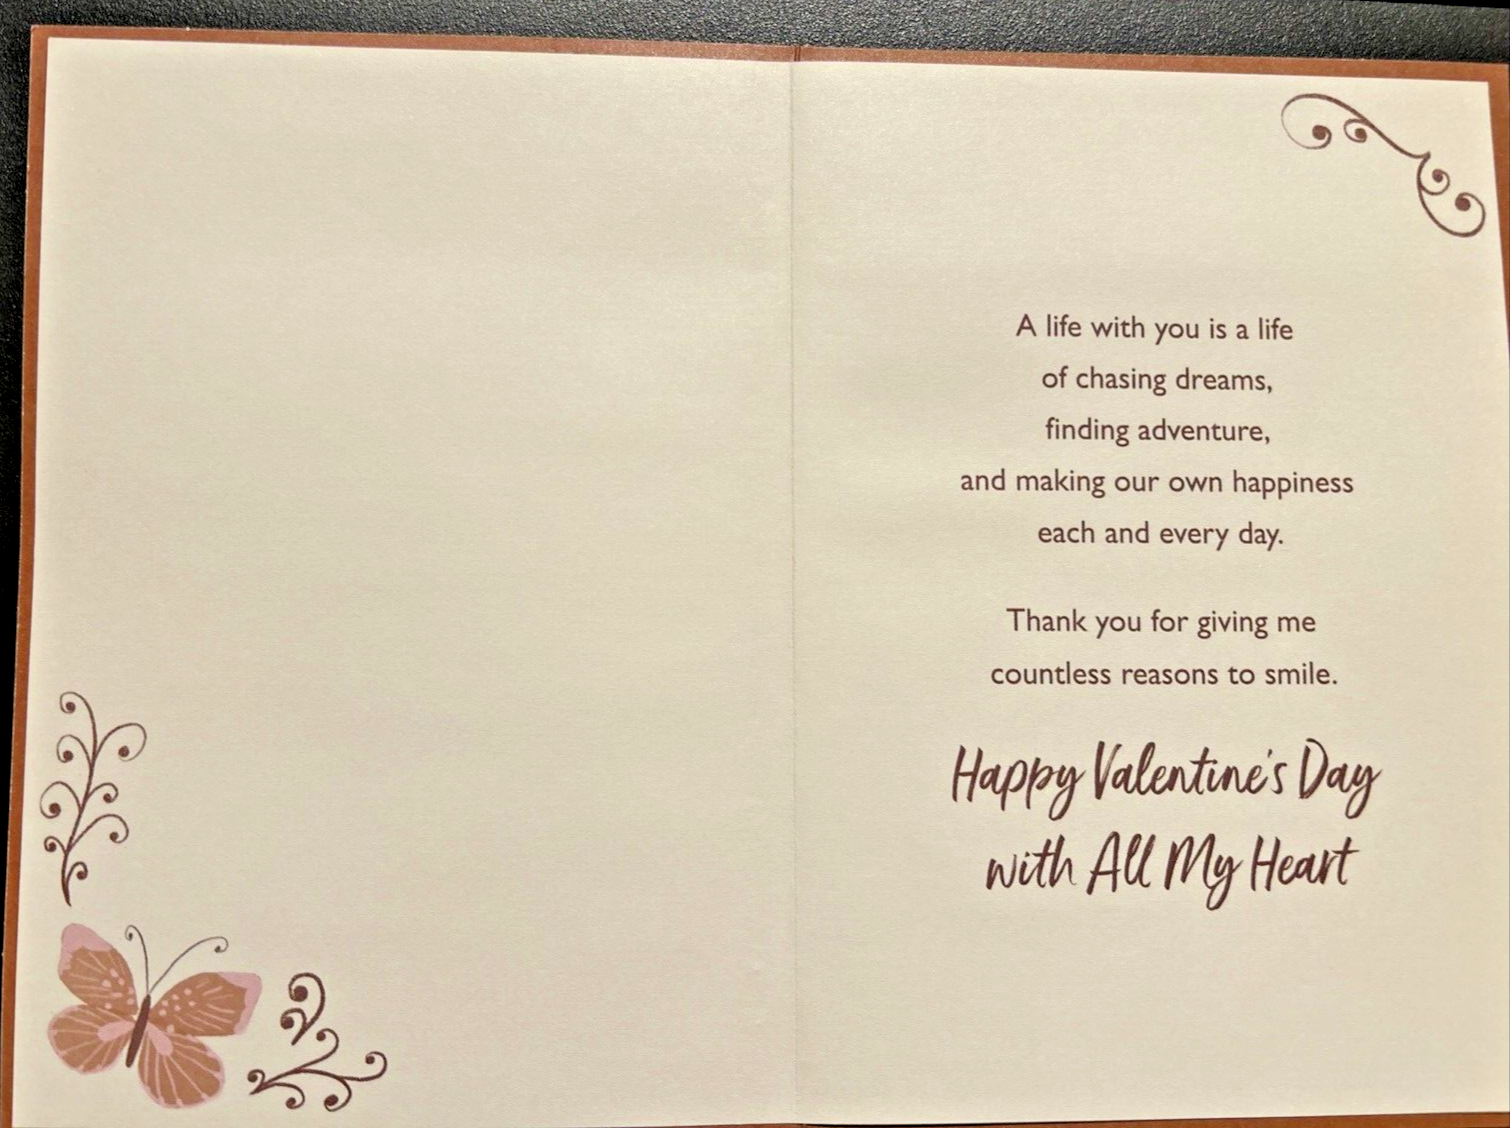 A life with you is a life
of chasing dreams,
finding adventure,
and making our own happiness
each and every day.
Thank you for giving me
countless reasons to smile.
Happy Valentine's Day
with All My Heart